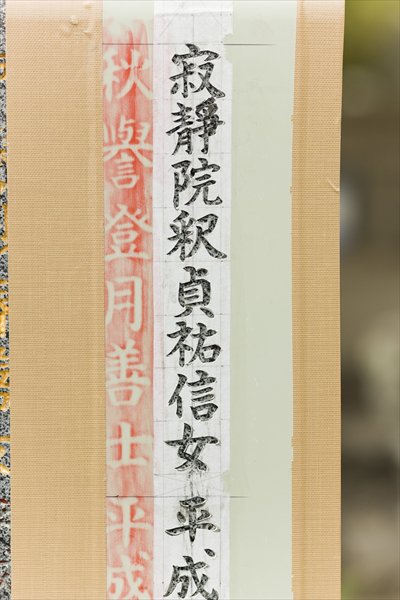 寂靜院釈貞祐信女平成
秋譽登月善士平成